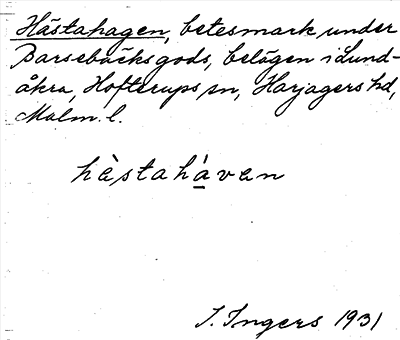 Hästahagen, betesmark under
Barsebäcksgods, belägen i Lund-
åkra, Hofterups sn, Harjagers hd,
Malm. l.
hèstahá̱ven
I. Ingers 1931